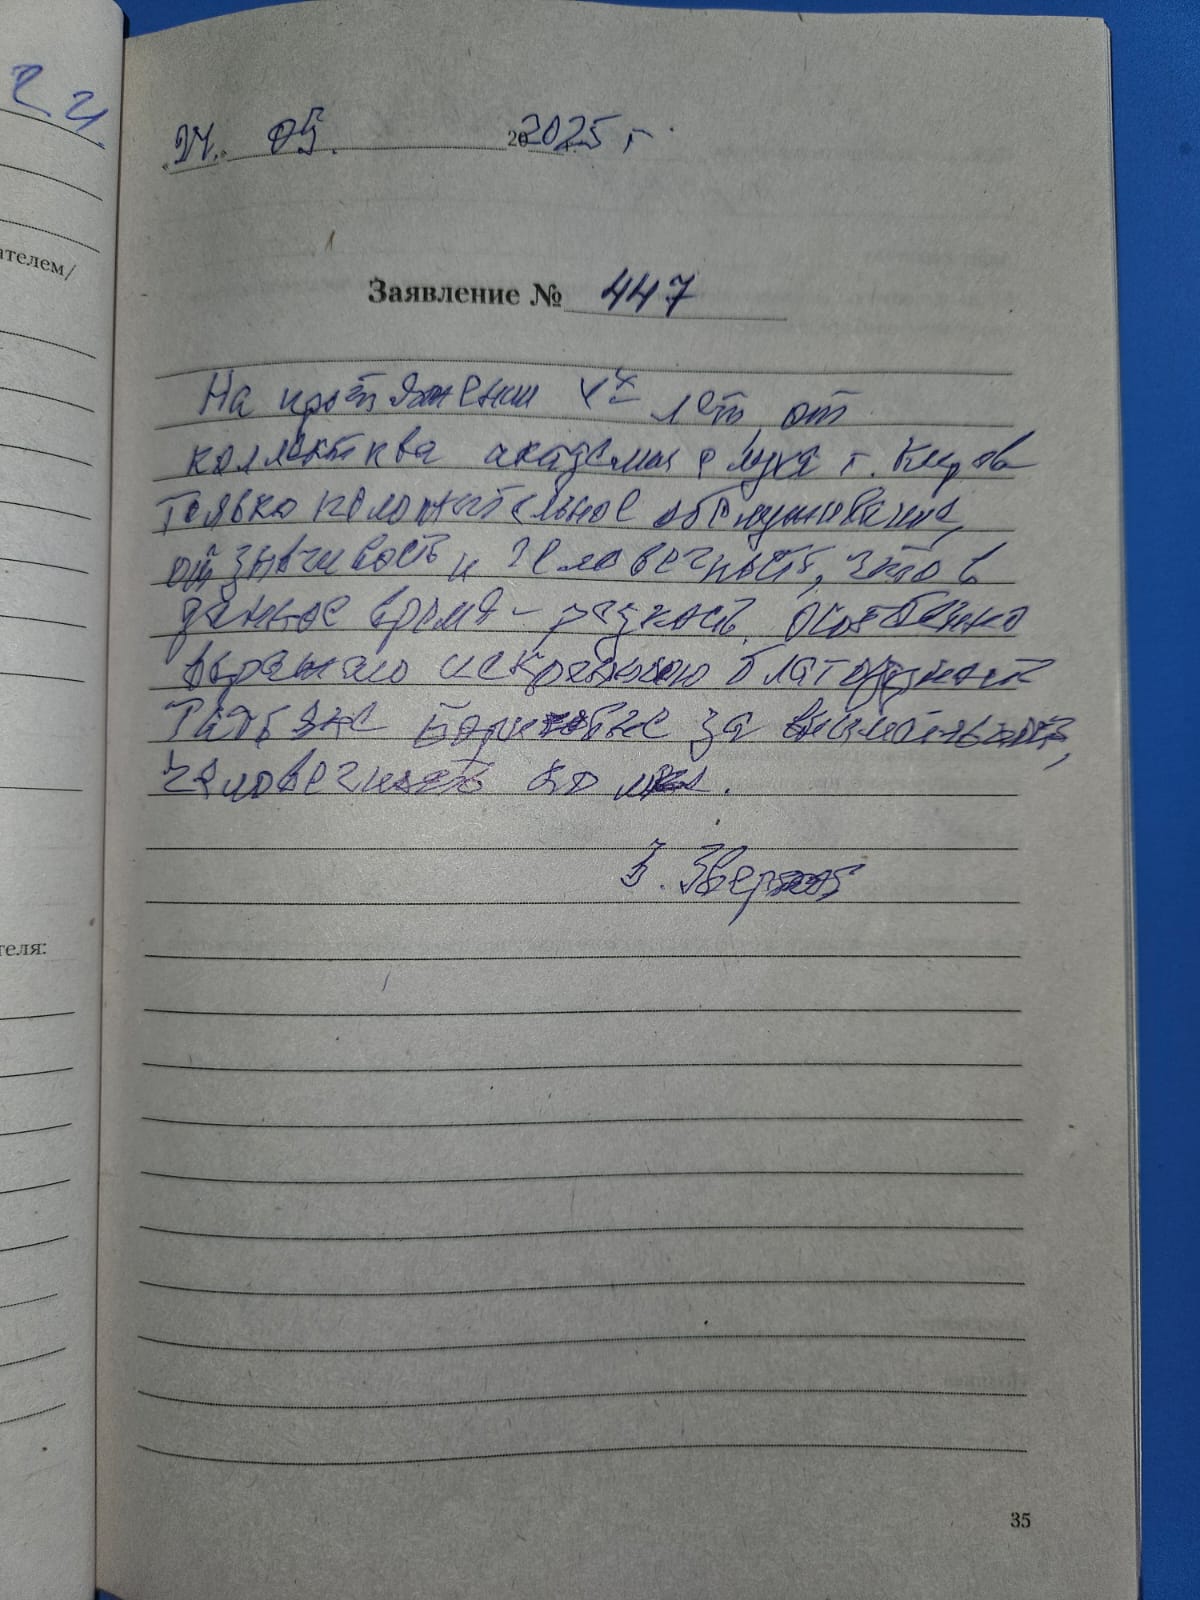 24. 05. 20 2025 г.
ателем/
Заявление № 447
На протяжении 4х лет от
коллектива академия слуха г. Киров
только положительное обслуживание,
отзывчивость и человечность, что в
данное время - редкость. Особенно
выражаю искреннюю благодарность
Татьяне Борисовне за внимательность,
человечность
З.
теля:
35